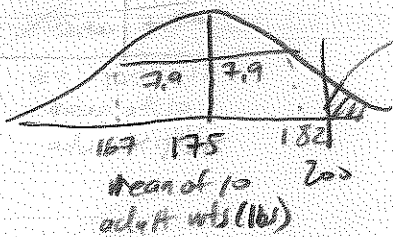 7.9 7.9
167 175 182
200
mean of 10
adult wts (lbs)